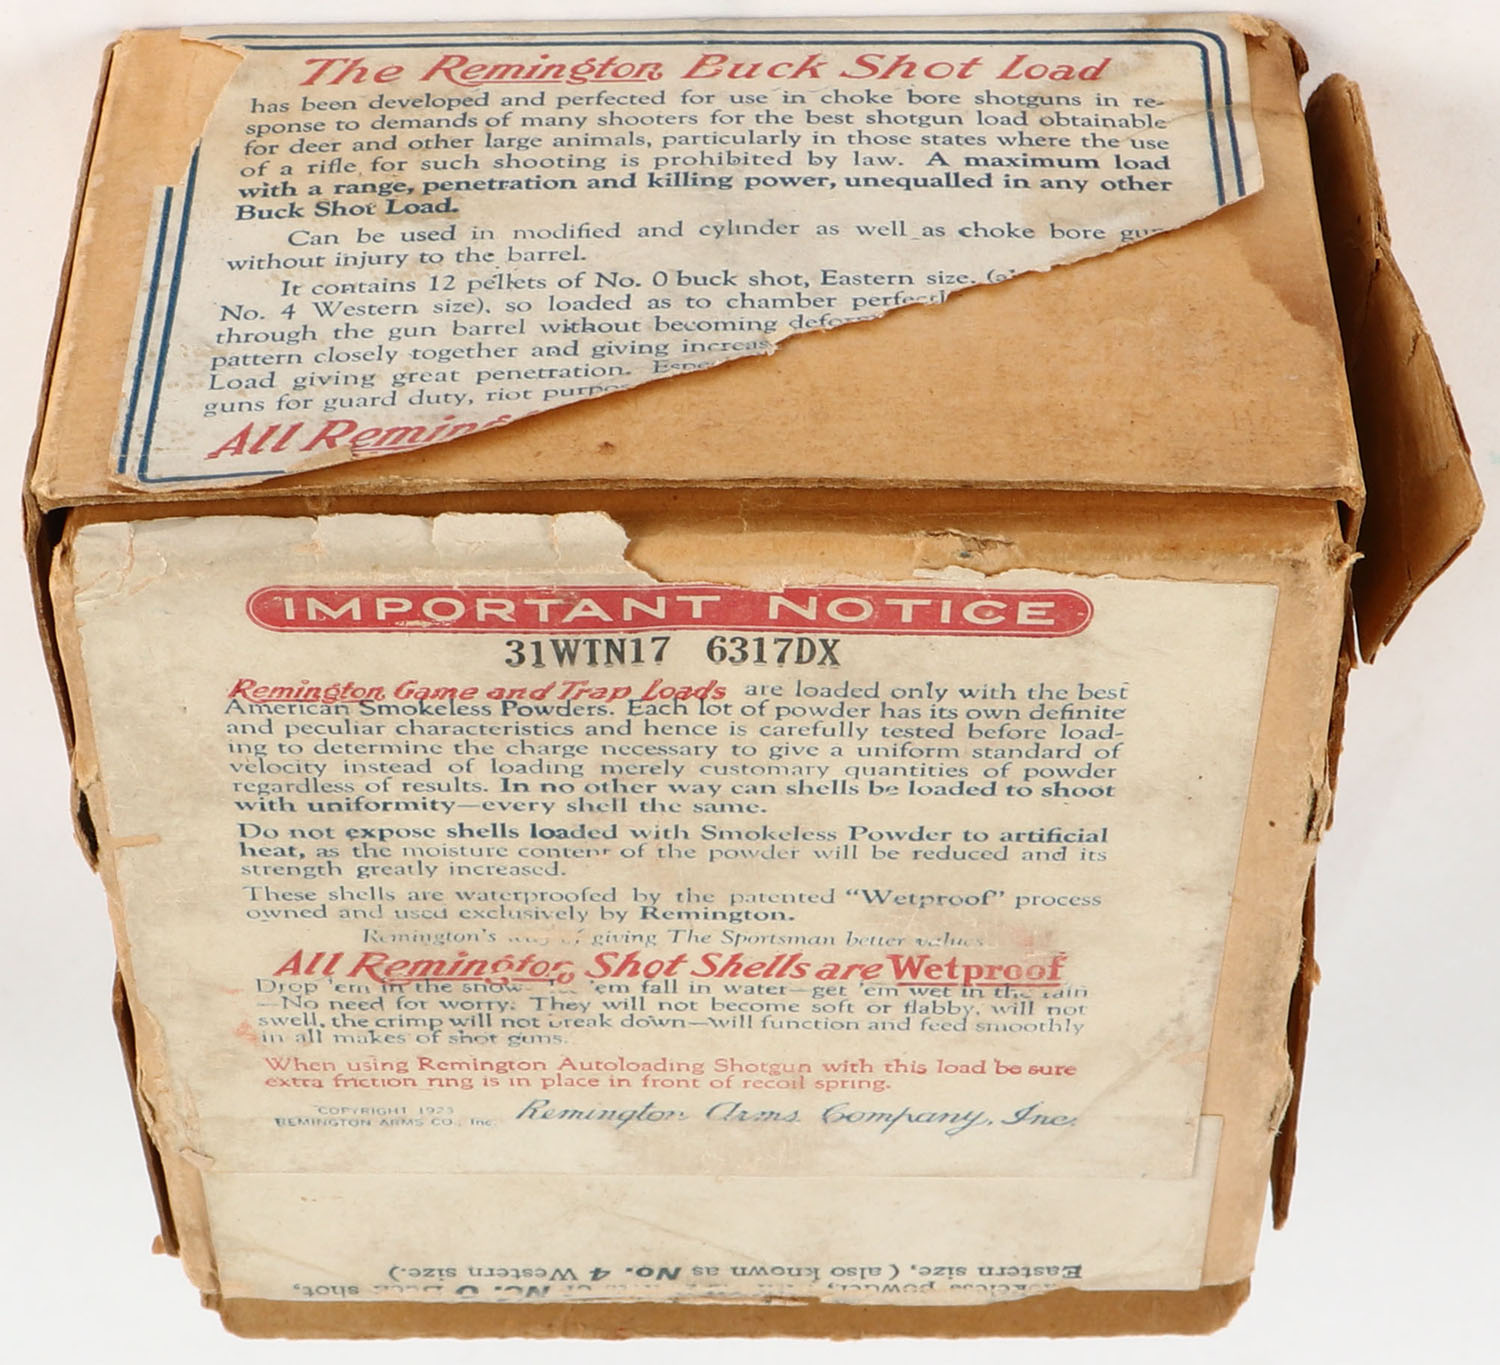 The Remington Buck Shot Load
has been developed and perfected for use in choke bore shotguns in re-
sponse to demands of many shooters for the best shotgun load obtainable
for deer and other large animals, particularly in those states where the use
of a rifle for such shooting is prohibited by law. A maximum load
with a range, penetration and killing power, unequalled in any other
Buck Shot Load.
Can be used in modified and cylinder as well as choke bore
without injury to the barrel.
It contains 12 pellets of No. 0 buck shot, Eastern size,
No. 4 Western size), so loaded as to chamber
through the gun barrel without becoming
pattern closely together and giving
Load giving great penetration.
guns for guard duty, riot
All
IMPORTANT NOTICE
31WTN17 6317DX
Remington Game and Trap Loads are loaded only with the best
American Smokeless Powders. Each lot of powder has its own definite
and peculiar characteristics and hence is carefully tested before load-
ing to determine the charge necessary to give a uniform standard of
velocity instead of loading merely customary quantities of powder
regardless of results. In no other way can shells be loaded to shoot
with uniformity—every shell the same.
Do not expose shells loaded with Smokeless Powder to artificial
heat, as the moisture content of the powder will be reduced and its
strength greatly increased.
These shells are waterproofed by the patented "Wetproof" process
owned and used exclusively by Remington.
Remington's way of giving The Sportsman better values
All Remington Shot Shells are Wetproof
Drop 'em in the snow— 'em fall in water—get 'em wet in the rain
—No need for worry. They will not become soft or flabby, will not
swell, the crimp will not break down—will function and feed smoothly
in all makes of shot guns.
When using Remington Autoloading Shotgun with this load be sure
extra friction ring is in place in front of recoil spring.
COPYRIGHT 1923
REMINGTON ARMS CO., Inc.
Remington Arms Company, Inc.
Eastern size, (also known as No. 4 Western size.)
shot,